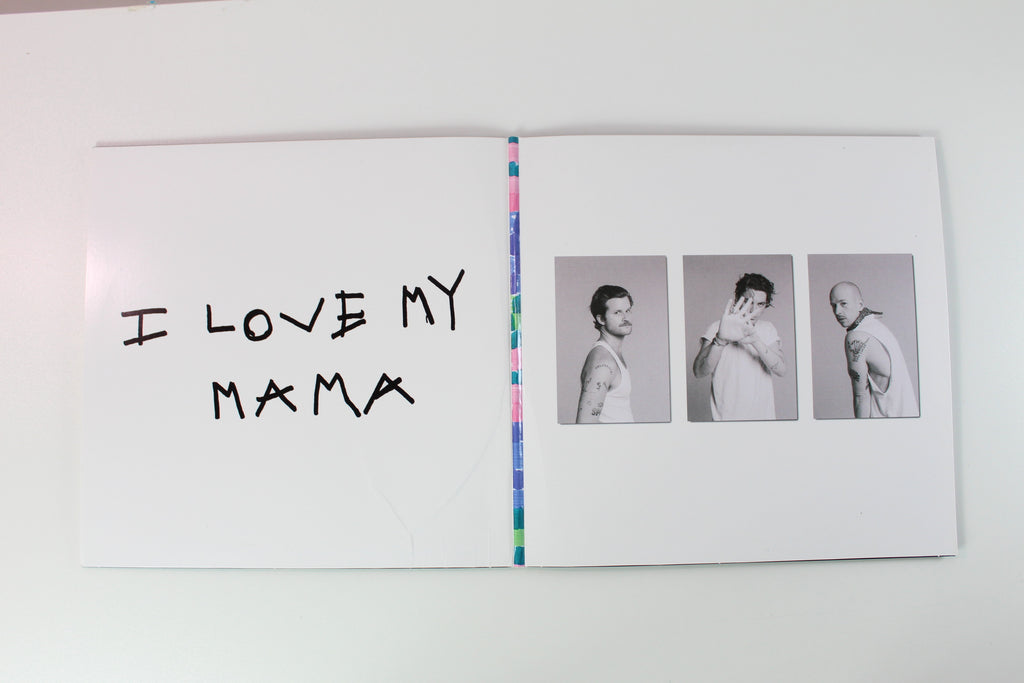 I LOVE MY
MAMA